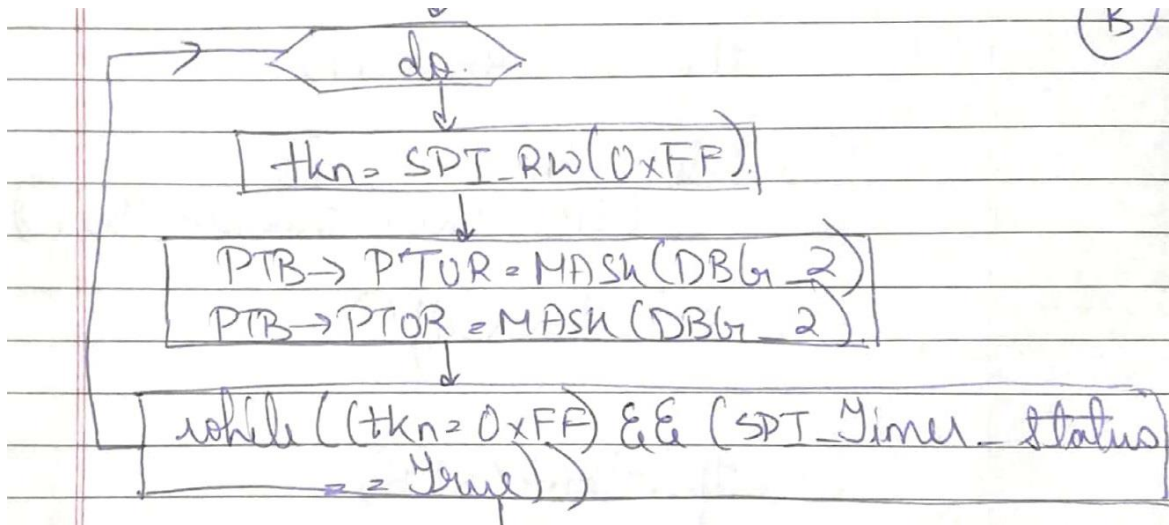 B
do.
tkn = SPI_RW(0xFF).
PTB→PTOR = MASK(DBG_2)
PTB→PTOR = MASK(DBG_2).
while ((tkn = 0xFF) && (SPI_Timer_Status
== True))